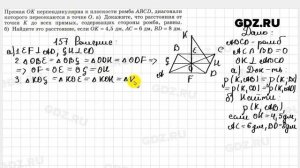 Прямая OK перпендикулярна к плоскости ромба ABCD, диагонали
которого пересекаются в точке O. а) Докажите, что расстояния от
точки K до всех прямых, содержащих стороны ромба, равны.
б) Найдите это расстояние, если OK = 4,5 дм, AC = 6 дм, BD = 8 дм.
GDZ.RU
157 Решение:
а) 1 EF⊥AD, GH⊥
2. △OBE = △OBG = △ODH = △ODF =>
=> OF = OE = OG = OH
3. △KOG = △KOE = △KOH = △K
Дано:
ABCD - ромб
AC ∩ BD = O
OK ⊥ ABCD
а) Док-ть:
б) Найти
если OK = 4,5 дм,
AC = 6 дм, BD = 8 дм
GDZ.RU